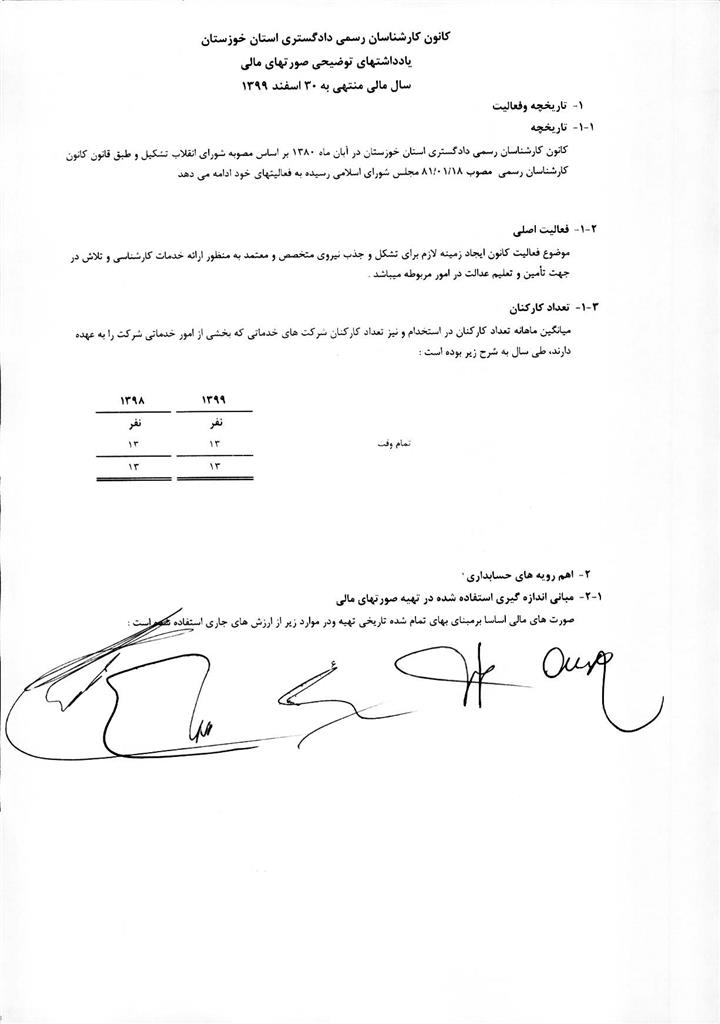 کانون کارشناسان رسمی دادگستری استان خوزستان
یادداشتهای توضیحی صورتهای مالی
سال مالی منتهی به ۳۰ اسفند ۱۳۹۹
۱- تاریخچه وفعالیت
۱-۱- تاریخچه
کانون کارشناسان رسمی دادگستری استان خوزستان در آبان ماه ۱۳۸۰ بر اساس مصوبه شورای انقلاب تشکیل و طبق قانون کانون
کارشناسان رسمی مصوب ۸۱/۰۱/۱۸ مجلس شورای اسلامی رسیده به فعالیتهای خود ادامه می دهد
۱-۲- فعالیت اصلی
موضوع فعالیت کانون ایجاد زمینه لازم برای تشکل و جذب نیروی متخصص و معتمد به منظور ارائه خدمات کارشناسی و تلاش در
جهت تأمین و تعلیم عدالت در امور مربوطه میباشد .
۱-۳- تعداد کارکنان
میانگین ماهانه تعداد کارکنان در استخدام و نیز تعداد کارکنان شرکت های خدماتی که بخشی از امور خدماتی شرکت را به عهده
دارند، طی سال به شرح زیر بوده است :
۱۳۹۹ ۱۳۹۸
نفر نفر
تمام وقت ۱۳ ۱۳
۱۳ ۱۳
۲- اهم رویه های حسابداری
۲-۱- مبانی اندازه گیری استفاده شده در تهیه صورتهای مالی
صورت های مالی اساسا برمبنای بهای تمام شده تاریخی تهیه ودر موارد زیر از ارزش های جاری استفاده شده است :